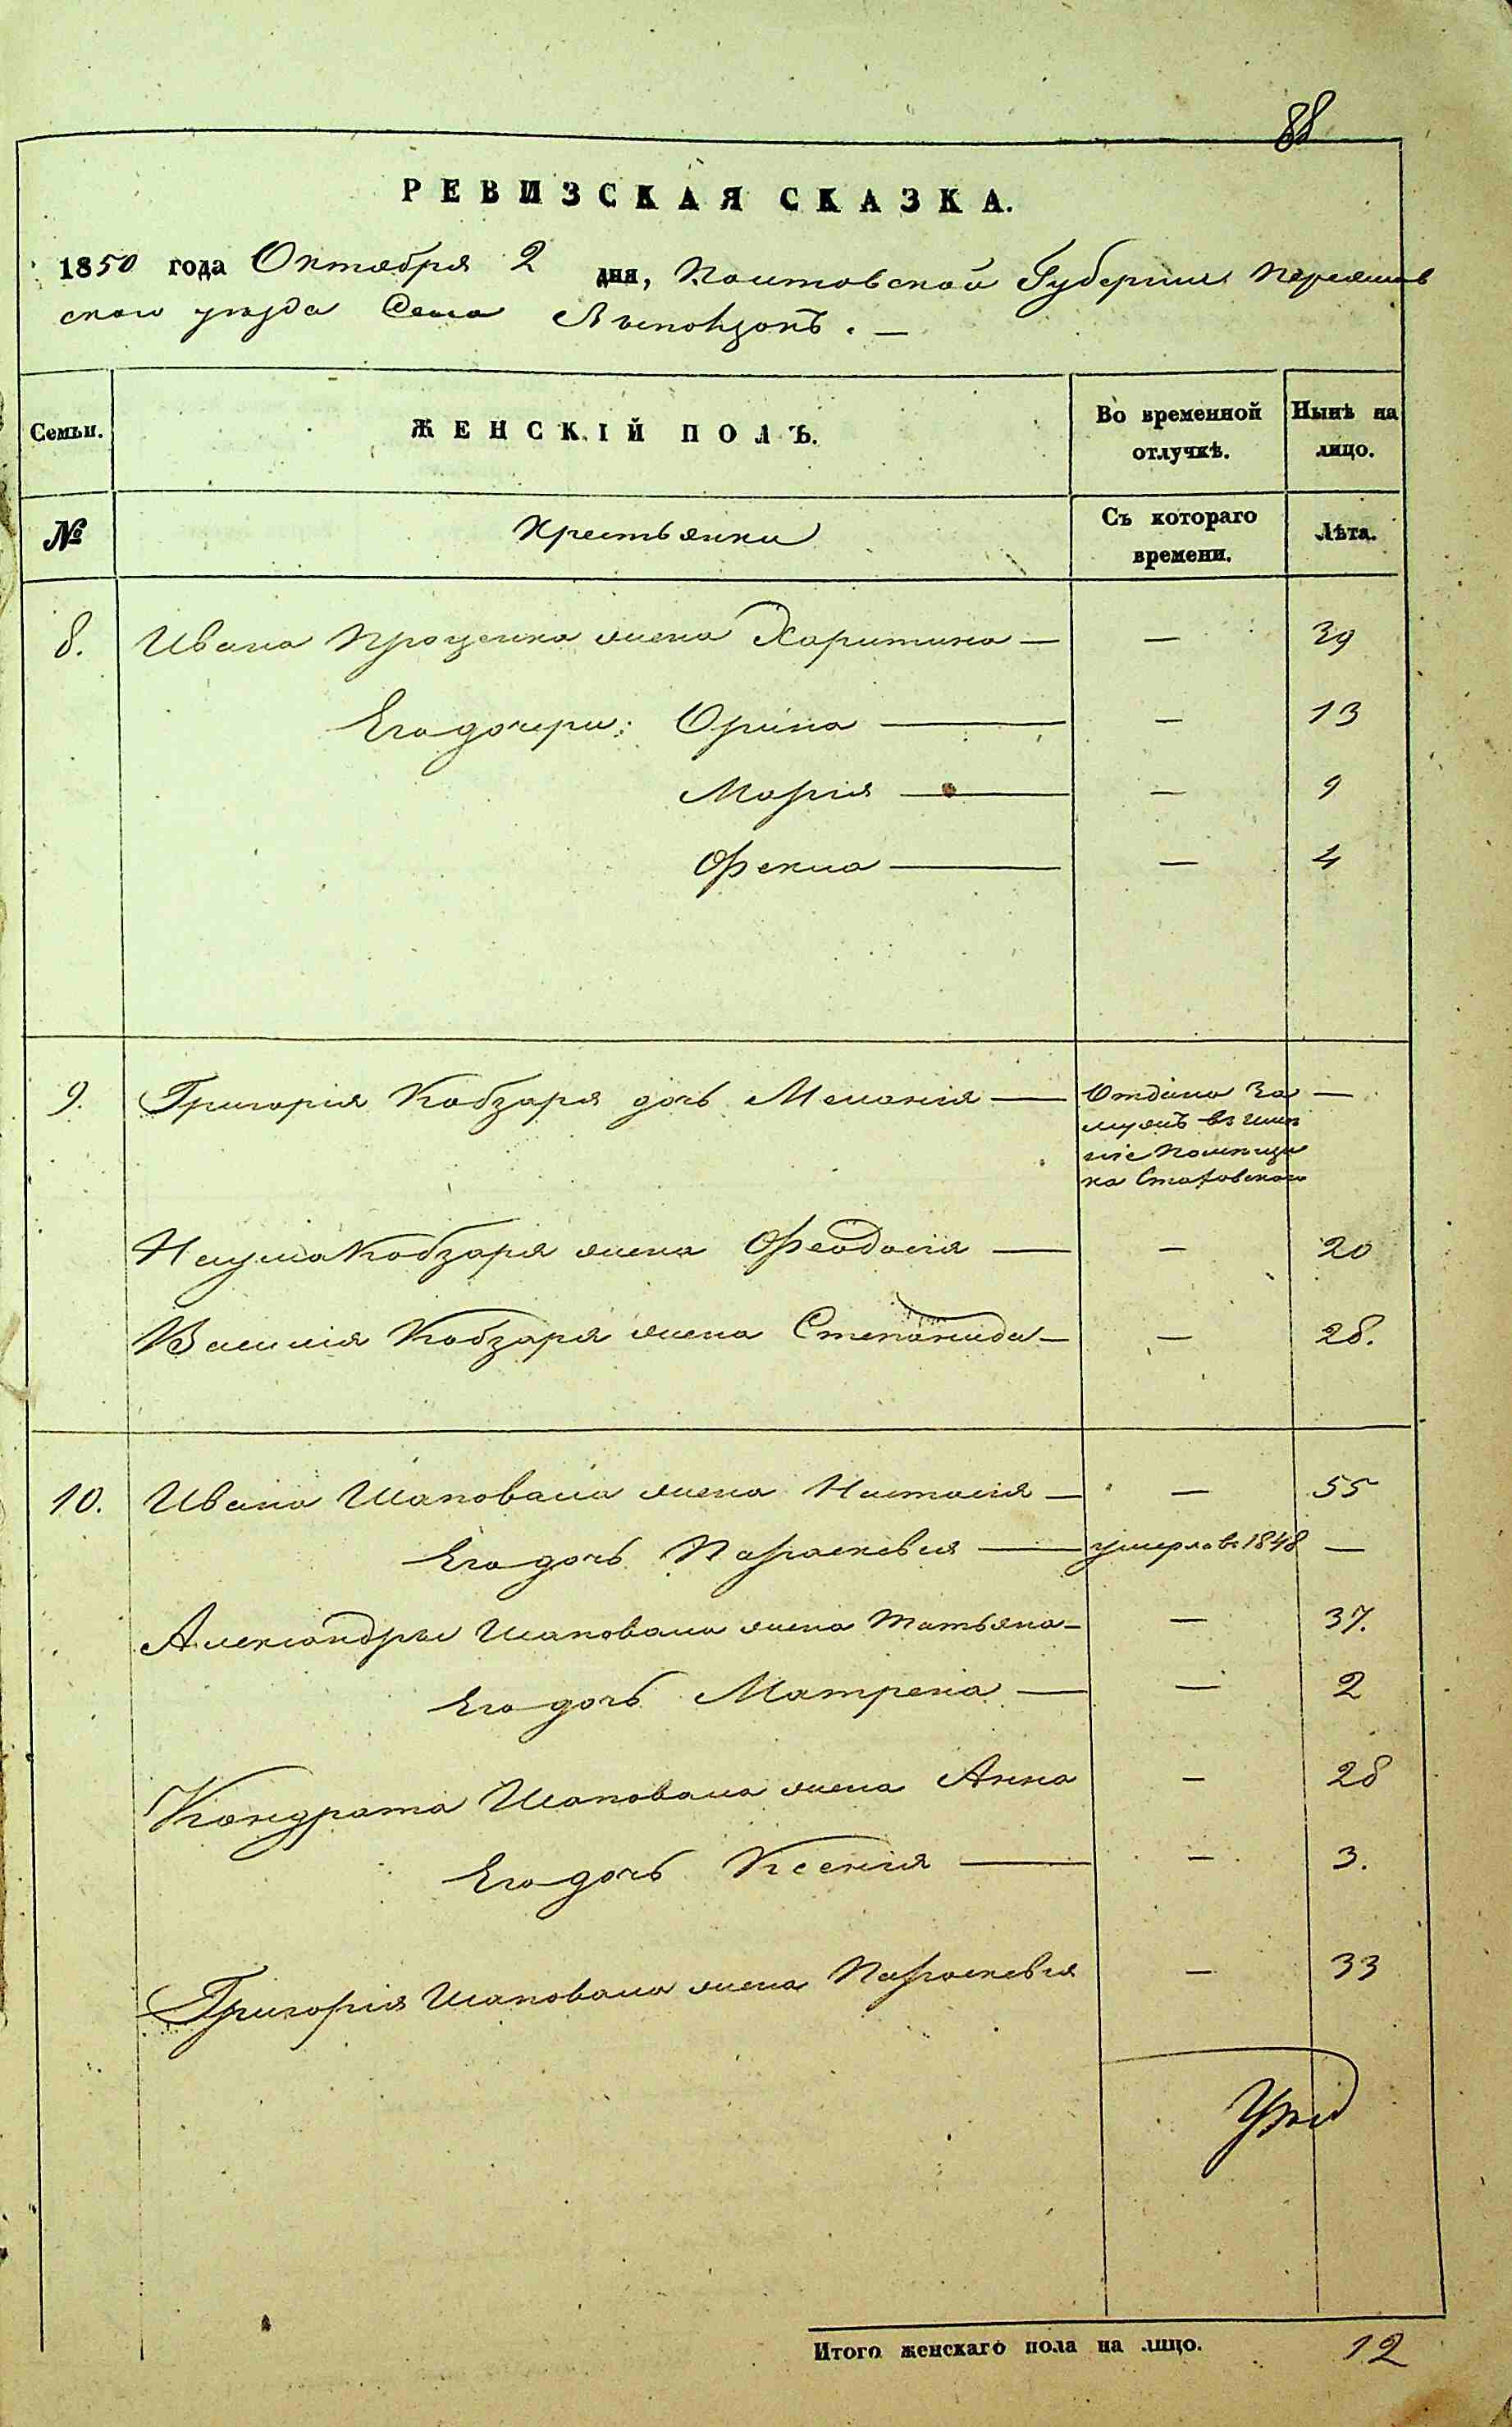 88
РЕВИЗСКАЯ СКАЗКА.
1850 года Октября 2 дня, Полтовской Губернии Переяслав
скаго уезда Села
Семьи. ЖЕНСКІЙ ПОЛЪ. Во временной отлучкѣ. Нынѣ на лицо.
№ Крестьянки Съ котораго времени. Лѣта.
8. Ивана Проценка жена Харитина — — 39
Его дочери: Орина — — 13
Марія — — 9
Фекла — — 4
9. Григорія Кобзаря дочь Меланія — Отдана за —
мужъ въ име
ніе помѣщи
ка
Наума Кобзаря жена Феодосія — — 20
Василія Кобзаря жена Степанида — — 28.
10. Ивана Шаповала жена Настасія — — 55
Его дочь Параскевія — умерла въ 1848 —
Александры Шаповала жена Татьяна — — 37.
Его дочь Матрена — — 2
Кондрата Шаповала жена Анна — 28
Его дочь Ксенія — — 3.
Григорія Шаповала жена Параскевія — 33
Итого женскаго пола на лицо. 12